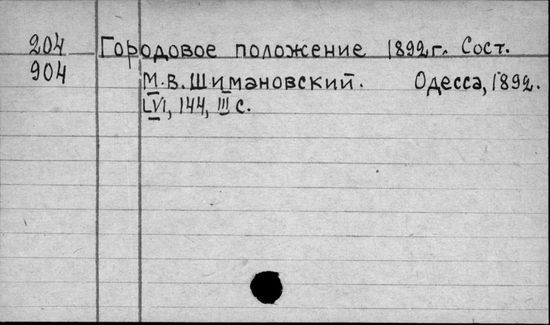 204 Городовое положение 1892 г. Сост.
904 М.В. Шимановский. Одесса, 1892.
LVI, 144, III с.